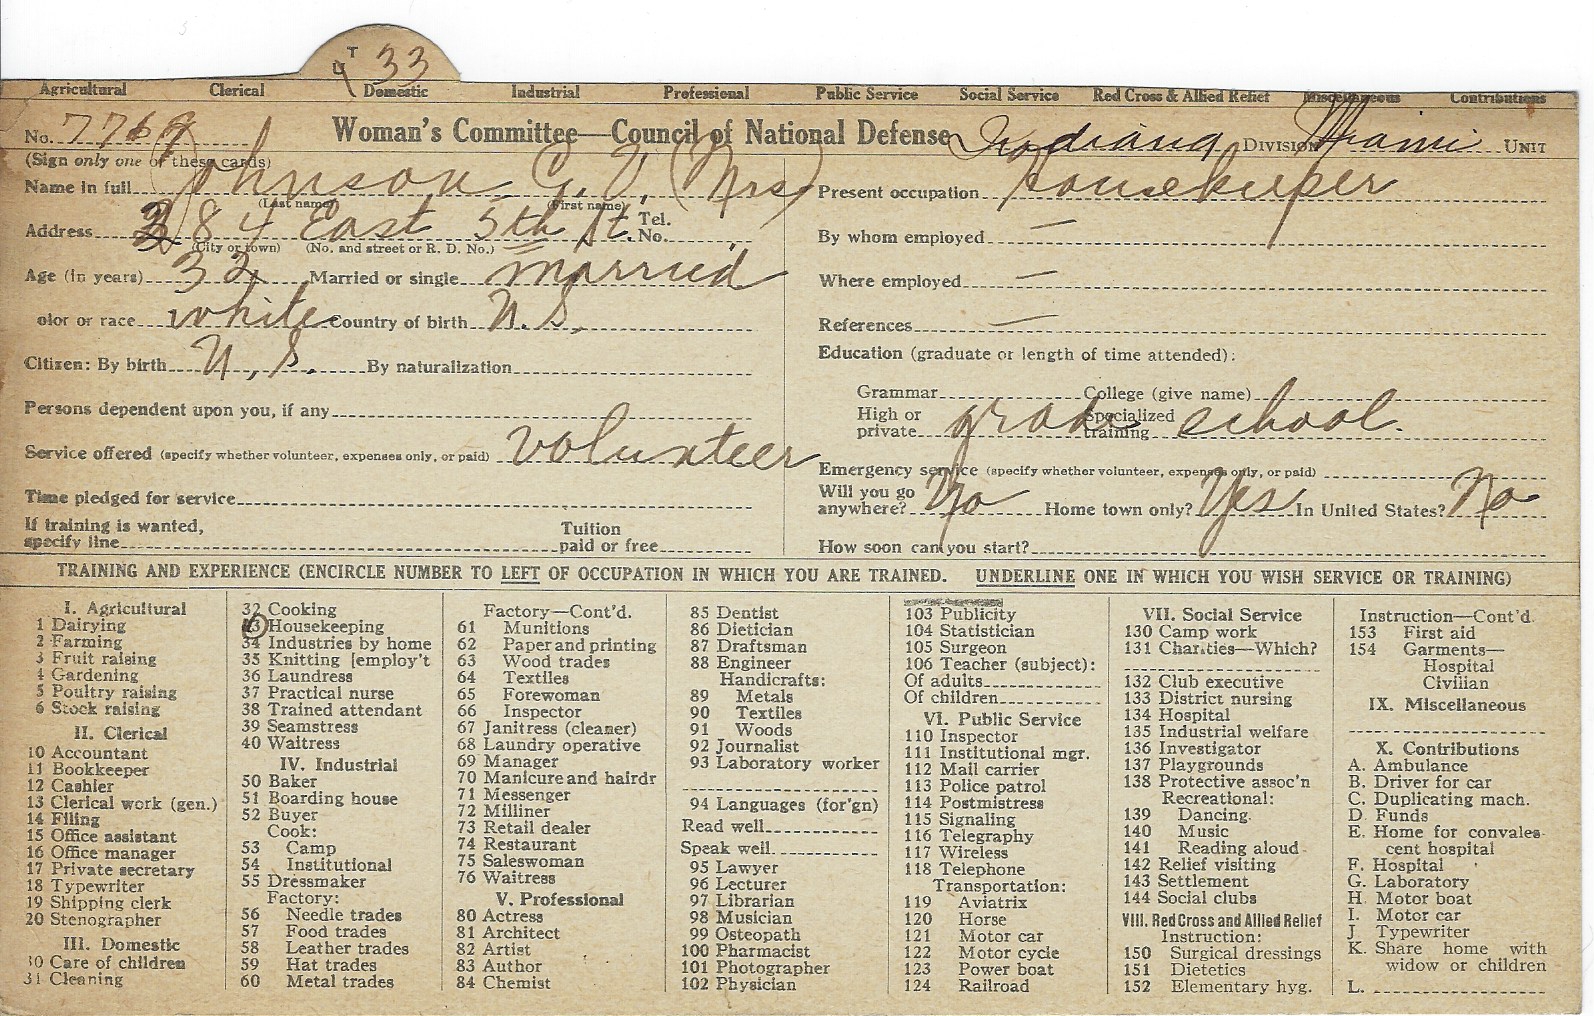 T
U 33
Agricultural Clerical Domestic Industrial Professional Public Service Social Service Red Cross & Allied Relief Miscellaneous Contributions
No. 7769 Woman's Committee—Council of National Defense Indiana DIVISION Miami UNIT
(Sign only one of these cards)
Name in full Johnson G. (Mrs)
(Last name) (First name)
Address 284 East 5th St. Tel. No.
(City or town) (No. and street or R. D. No.)
Age (in years) 32 Married or single married
olor or race white Country of birth U.S.
Citizen: By birth U.S. By naturalization
Persons dependent upon you, if any
Service offered (specify whether volunteer, expenses only, or paid) volunteer
Time pledged for service
If training is wanted, specify line Tuition paid or free
Present occupation Housekeeper
By whom employed —
Where employed —
References —
Education (graduate or length of time attended):
Grammar College (give name)
High or private grade Specialized training school.
Emergency service (specify whether volunteer, expenses only, or paid)
Will you go anywhere? No Home town only? Yes In United States? No
How soon can you start?
TRAINING AND EXPERIENCE (ENCIRCLE NUMBER TO LEFT OF OCCUPATION IN WHICH YOU ARE TRAINED. UNDERLINE ONE IN WHICH YOU WISH SERVICE OR TRAINING)
I. Agricultural
1 Dairying
2 Farming
3 Fruit raising
4 Gardening
5 Poultry raising
6 Stock raising
II. Clerical
10 Accountant
11 Bookkeeper
12 Cashier
13 Clerical work (gen.)
14 Filing
15 Office assistant
16 Office manager
17 Private secretary
18 Typewriter
19 Shipping clerk
20 Stenographer
III. Domestic
30 Care of children
31 Cleaning
32 Cooking
33 Housekeeping
34 Industries by home
35 Knitting [employ't
36 Laundress
37 Practical nurse
38 Trained attendant
39 Seamstress
40 Waitress
IV. Industrial
50 Baker
51 Boarding house
52 Buyer
Cook:
53 Camp
54 Institutional
55 Dressmaker
Factory:
56 Needle trades
57 Food trades
58 Leather trades
59 Hat trades
60 Metal trades
Factory—Cont'd.
61 Munitions
62 Paper and printing
63 Wood trades
64 Textiles
65 Forewoman
66 Inspector
67 Janitress (cleaner)
68 Laundry operative
69 Manager
70 Manicure and hairdr
71 Messenger
72 Milliner
73 Retail dealer
74 Restaurant
75 Saleswoman
76 Waitress
V. Professional
80 Actress
81 Architect
82 Artist
83 Author
84 Chemist
85 Dentist
86 Dietician
87 Draftsman
88 Engineer
Handicrafts:
89 Metals
90 Textiles
91 Woods
92 Journalist
93 Laboratory worker
94 Languages (for'gn)
Read well
Speak well
95 Lawyer
96 Lecturer
97 Librarian
98 Musician
99 Osteopath
100 Pharmacist
101 Photographer
102 Physician
103 Publicity
104 Statistician
105 Surgeon
106 Teacher (subject):
Of adults
Of children
VI. Public Service
110 Inspector
111 Institutional mgr.
112 Mail carrier
113 Police patrol
114 Postmistress
115 Signaling
116 Telegraphy
117 Wireless
118 Telephone
Transportation:
119 Aviatrix
120 Horse
121 Motor car
122 Motor cycle
123 Power boat
124 Railroad
VII. Social Service
130 Camp work
131 Charities—Which?
132 Club executive
133 District nursing
134 Hospital
135 Industrial welfare
136 Investigator
137 Playgrounds
138 Protective assoc'n
Recreational:
139 Dancing
140 Music
141 Reading aloud
142 Relief visiting
143 Settlement
144 Social clubs
VIII. Red Cross and Allied Relief
Instruction:
150 Surgical dressings
151 Dietetics
152 Elementary hyg.
Instruction—Cont'd.
153 First aid
154 Garments—
Hospital
Civilian
IX. Miscellaneous
X. Contributions
A. Ambulance
B. Driver for car
C. Duplicating mach.
D. Funds
E. Home for convales-
cent hospital
F. Hospital
G. Laboratory
H. Motor boat
I. Motor car
J. Typewriter
K. Share home with
widow or children
L.